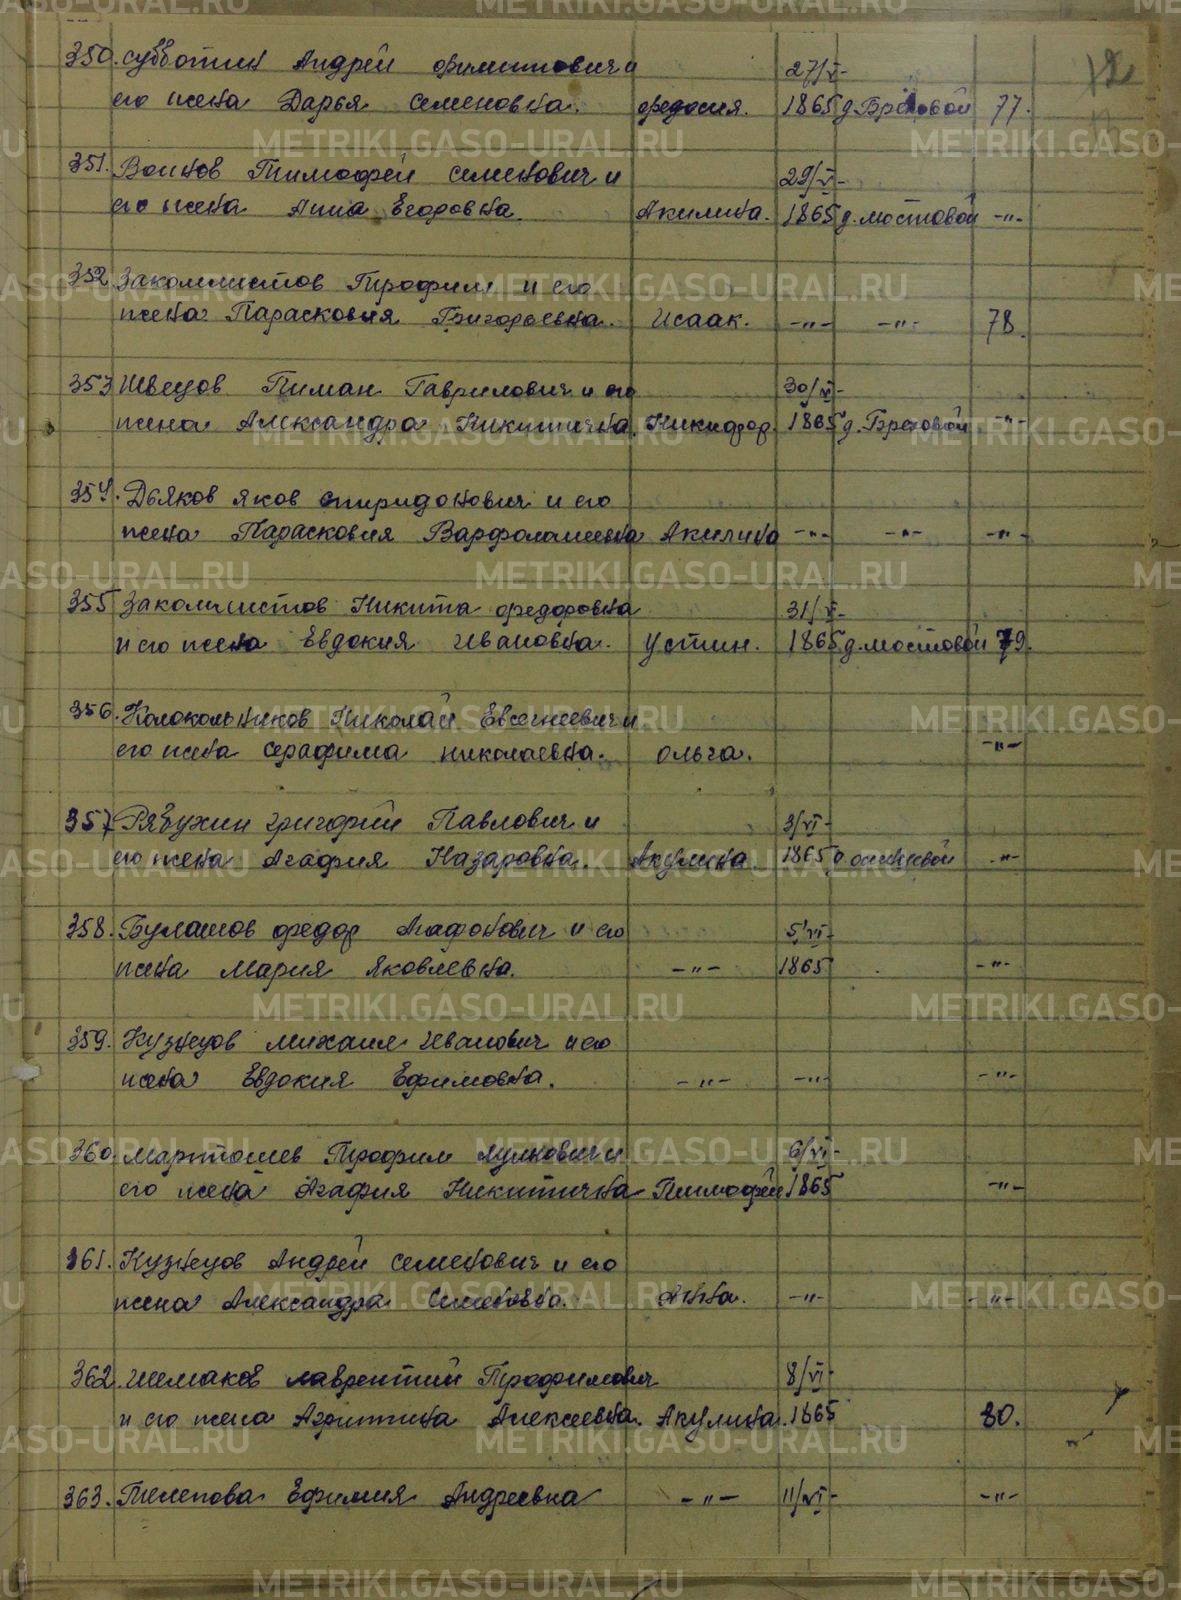 350. Субботин Андрей Филиппович и 27/V-
его жена Дарья Семеновна. Федосия. 1865 д. Бреховой 77.
351. Воинов Тимофей Семенович и 29/V-
его жена Анна Егоровна. Акилина. 1865 д. Мостовой -"-
352 Закомлистов Трофим и его
жена Парасковия Григорьевна. Исаак. -"- -"- 78.
353 Швецов Пиман Гаврилович и его 30/V-
жена Александра Никитична. Никифор. 1865 д. Бреховой -"-
354. Дьяков Яков Спиридонович и его
жена Парасковия Варфоломеевна Акилина -"- -"- -"-
355 Закомлистов Никита Федоровна 31/V-
и его жена Евдокия Ивановна. Устин. 1865 д. Мостовой 79.
356. Колокольников Николай Евгениевич и
его жена Серафима Николаевна. Ольга. -"-
357 Рябухин Григорий Павлович и 3/VI-
его жена Агафия Назаровна. Акулина 1865 -"-
358. Булашов Федор Агафонович и его 5/VI-
жена Мария Яковлевна. -"- 1865 -"-
359. Кузнецов Михаил Иванович и его
жена Евдокия Ефимовна. -"- -"- -"-
360. Мартюшев Трофим и 6/VI-
его жена Агафия Никитична Тимофей 1865 -"-
361. Кузнецов Андрей Семенович и его
жена Александра Семеновна. Анна. -"- -"-
362. Шемаков Лаврентий Трофимович 8/VI-
и его жена Агриппина Алексеевна. Акулина. 1865 80.
363. Телепова Ефимия Андреевна -"- 11/VI- -"-
METRIKI.GASO-URAL.RU